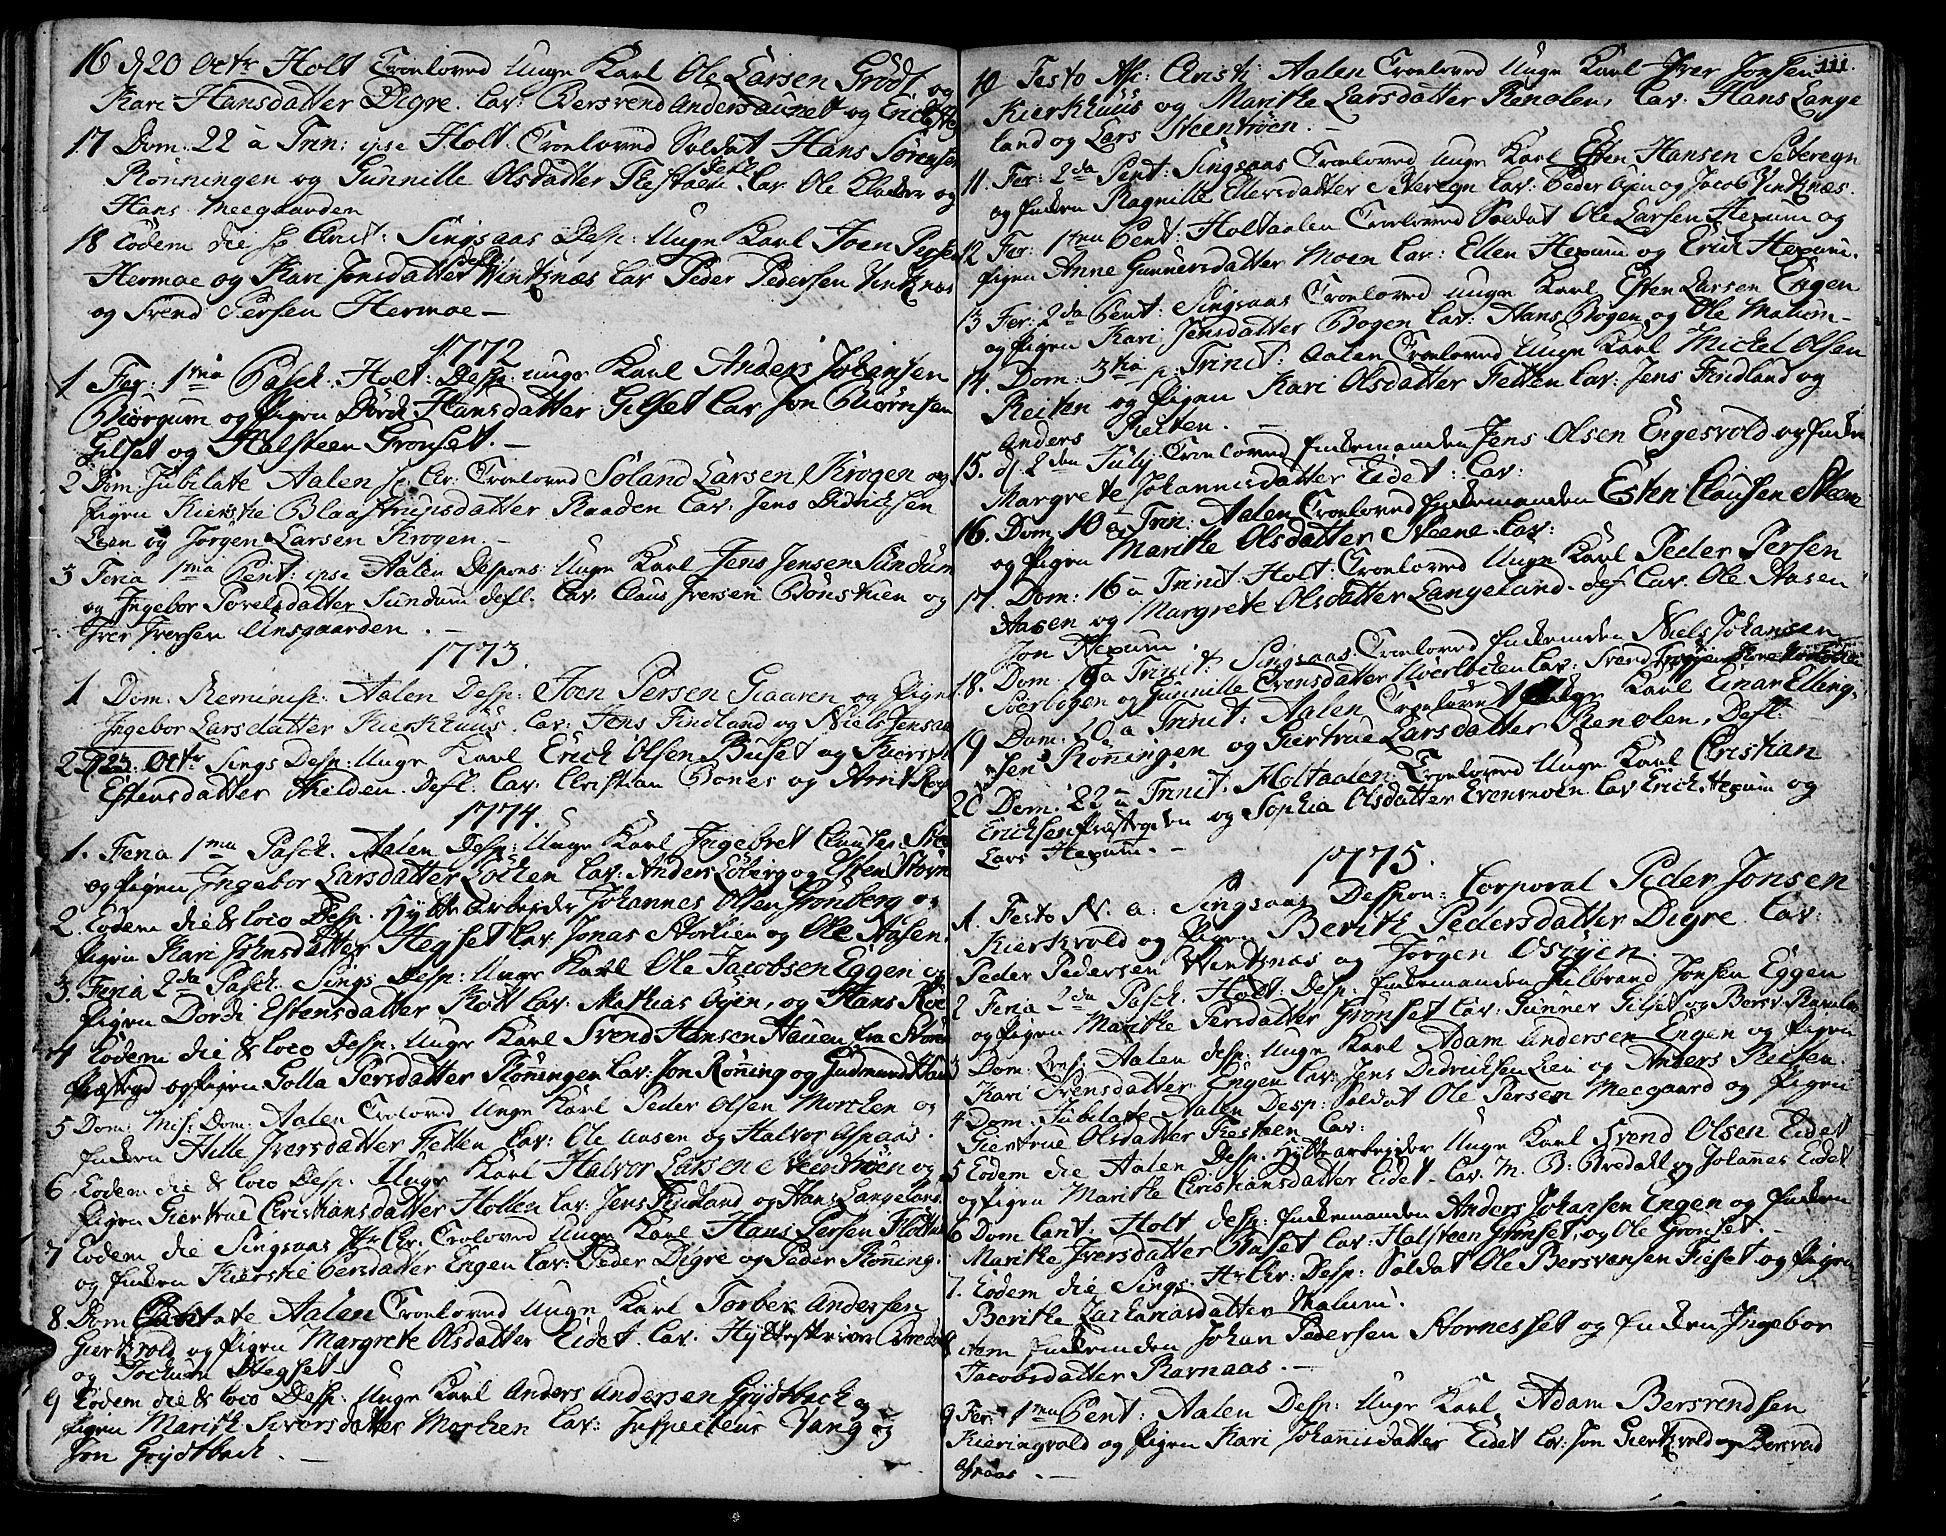 16 d 20 Octr Holt Troeloved Unge Karl Ole Larsen Grødt og
Kari Hansdatter Digre. Cav: Bersvend Andersaunet og Erich
17 Dom. 22 a Trin: ipse Holt. Troeloved Soldat Hans Sørensen
Rønningen og Gunnille Olsdatter Defl. Cav. Ole og
Hans Meegaarden
18 Eodem die Sp Christ: Singsaas Desp: Unge Karl Joen Persen
Hermoe og Kari Jonsdatter Vintznæs Cav Peder Pedersen Vintznæs
og Svend Persen Hermoe —
1772
1 Fer: 1ma Pasch. Holt: Desp: unge Karl Anders Johansen
Biørgum og Pigen Dordi Hansdatter Gilset Cav Jon Biørnsen
Gilset og Halsteen Grønset. —
2 Dom Jubilate Aalen sp. Chr: Troeloved Søland Larsen Krogen og
Pigen Kierstie Blaastrupsdatter Raaden Cav. Jens Didrichsen
Leen og Jørgen Larsen Krogen. —
3 Feria 1ma Pent: ipse Aalen Despons: Unge Karl Jens Jensen Sundum
og Ingebor Povelsdatter Sundum defl. Cav. Claus Iversen Bønskien og
Iver Iversen Unsgaarden. —
1773.
1 Dom: Reminisc: Aalen Desp: Joen Persen Gaaren og Pigen
Ingebor Larsdatter Kierkhuus. Cav: Jens Findland og Niels Jensen
2 D 23 Octr Sings Desp: Unge Karl Erich Olsen Buset og
Estensdatter Kilden. Defl. Cav. Christian Bones og Arnt
1774.
1. Feria 1ma Pasch. Aalen Desp: Unge Karl Ingebret Clausen
og Pigen Ingebor Larsdatter Løchen Cav: Anders Løberg og Esten
2. Eodem die & loco Desp. Hytte arbeider Johannes Olsen Grønberg og
Pigen Kari Johnsdatter Hegset Cav. Jonas Storlien og Ole Aasen.
3. Feria 2da Pasch. Sings Desp: Unge Karl Ole Jacobsen Eggen og
Pigen Dordi Estensdatter Kott Cav: Mathias Øyen, og Hans
4 Eodem die & loco Desp: Unge Karl Svend Hansen Hauen fra Støren
Præstegd og Pigen Golla Persdatter Røningen Cav: Jon Røning og Gudmund
5 Dom: Mis: Dom: Aalen Troeloved Unge Karl Peder Olsen Morchen og
Enken Hille Iversdatter Fetten Cav: Ole Aasen og Halvor Aspaas.
6. Eodem die & loco Desp. Unge Karl Halvor Larsen Steentrøen og
Pigen Giertrue Christiansdatter Holten Cav: Jens Findland og Hans Langeland.
7 Eodem die Singsaas Pr Chr. Troloved Unge Karl Hans Persen
og Enken Kierstie Persdatter Engen Cav: Peder Digre og Peder Røning.
8. Dom Cantate Aalen Troeloved Unge Karl Torber Andersen
Giertzvold og Pigen Margrete Olsdatter Eidet. Cav. Hytteskriver Bredal
og Jochum Hegset.
9 Eodem die & loco Desp. Unge Karl Anders Andersen Grydtbach og
Pigen Marith Siversdatter Morchen Cav: Inspecteur Vang og
Jon Grydtbach. —
111.
10 Festo Asc: Christi Aalen Troeloved Unge Karl Iver Jonsen
Kierkhuus og Marithe Larsdatter Renolen, Cav. Hans Lange
land og Lars Steentrøen. —
11. Fer: 2da Pent: Singsaas Troeloved Unge Karl Esten Hansen Setteregn
og Enken Ragnille Ellevsdatter Setteregn Cav: Peder Øjen og Jacob Vintznæs.
12 Fer: 1ma Pent: Holtaalen Troeloved Soldat Ole Larsen Hexum og
Pigen Anne Gunnersdatter Moen Cav: Ellen Hexum og Erich Hexum.
13 Fer: 2da Pent: Singsaas Troeloved Unge Karl Esten Larsen Engen
og Pigen Kari Jensdatter Bogen Cav: Hans Bogen og Ole Malum —
14. Dom: 3tia p. Trinit: Aalen Troeloved Unge Karl Michel Olsen
Reiten og Pigen Kari Olsdatter Fetten Cav: Jens Findland og
Anders Reiten. —
15. d 2den July Troeloved Enkemanden Jens Olsen Engesvold og Enken
Margrete Johannisdatter Eidet: Cav:
16. Dom. 10 a Trin: Aalen Troeloved Enkemanden Esten Clausen Steene
og Pigen Marithe Olsdatter Steene. Cav:
17. Dom: 16 a Trinit. Holt: Troeloved Unge Karl Peder Persen
Aasen og Margrete Olsdatter Langeland. defl. Cav. Ole Aasen
Jon Hexum
18. Dom 19 a Trinit: Singsaas Troeloved Enkemden Niels Johansen
og Gunnille Evensdatter Cav: Svend
19 Dom: 20 a Trinit: Aalen Troeloved Unge Karl Einar Elling-
sen Røningen og Giertrue Larsdatter Renolen. Defl.
20 Dom. 22 a Trinit: Holtaalen: Troeloved Unge Karl Christian
Erichsen Præstegden og Sophia Olsdatter Evensmoen. Cav Erich Hexum og
Lars Hexum. —
1775.
1. Festo N. a: Singsaas Despon: Corporal Peder Jonsen
Kierkvold og Pigen Berith Pedersdatter Digre Cav:
Peder Pedersen Vintznæs og Jørgen Osøyen. —
2 Feria 2da Pasch. Holt. Desp. Enkemanden Hulbrand Jonsen Eggen
og Pigen Marithe Persdatter Grønset Cav: Gunner Gilset og Bersv:
3 Dom: Qvas. Aalen desp: Unge Karl Adam Andersen Engen og Pigen
Kari Svensdatter Engen Cav: Jens Dedrichsen Leen og Anders Reiten.
4 Dom. Jubilate Aalen Desp: Soldat Ole Persen Meegaard og Pigen
Giertrue Olsdatter Cav:
5 Eodem die Aalen Desp. Hyttearbeider Unge Karl Svend Olsen Eidet
og Pigen Marithe Christiansdatter Eidet. Cav. M. B: Bredall og Johannes Eidet
6 Dom Cant. Holt desp: Enkemanden Anders Johansen Engen og Enken
Marithe Iversdatter Buset Cav: Halsteen Grønset, og Ole Grønset. —
7. Eodem die Sings. Hr Chr: Desp: Soldat Ole Bersvensen Fieset og Pigen
Berithe Zachariasdatter Malum.
8 item Enkemden Johan Pedersen Stornesset og Enken Ingebor
Jacobsdatter Ravnaas. —
9 Fer: 1ma Pent: Aalen Desp: Unge Karl Adam Bersvendsen
Kieringvold og Pigen Kari Johannisdatter Eidet Cav: Jon Giertzvold og Bersvend
Aspaas. —